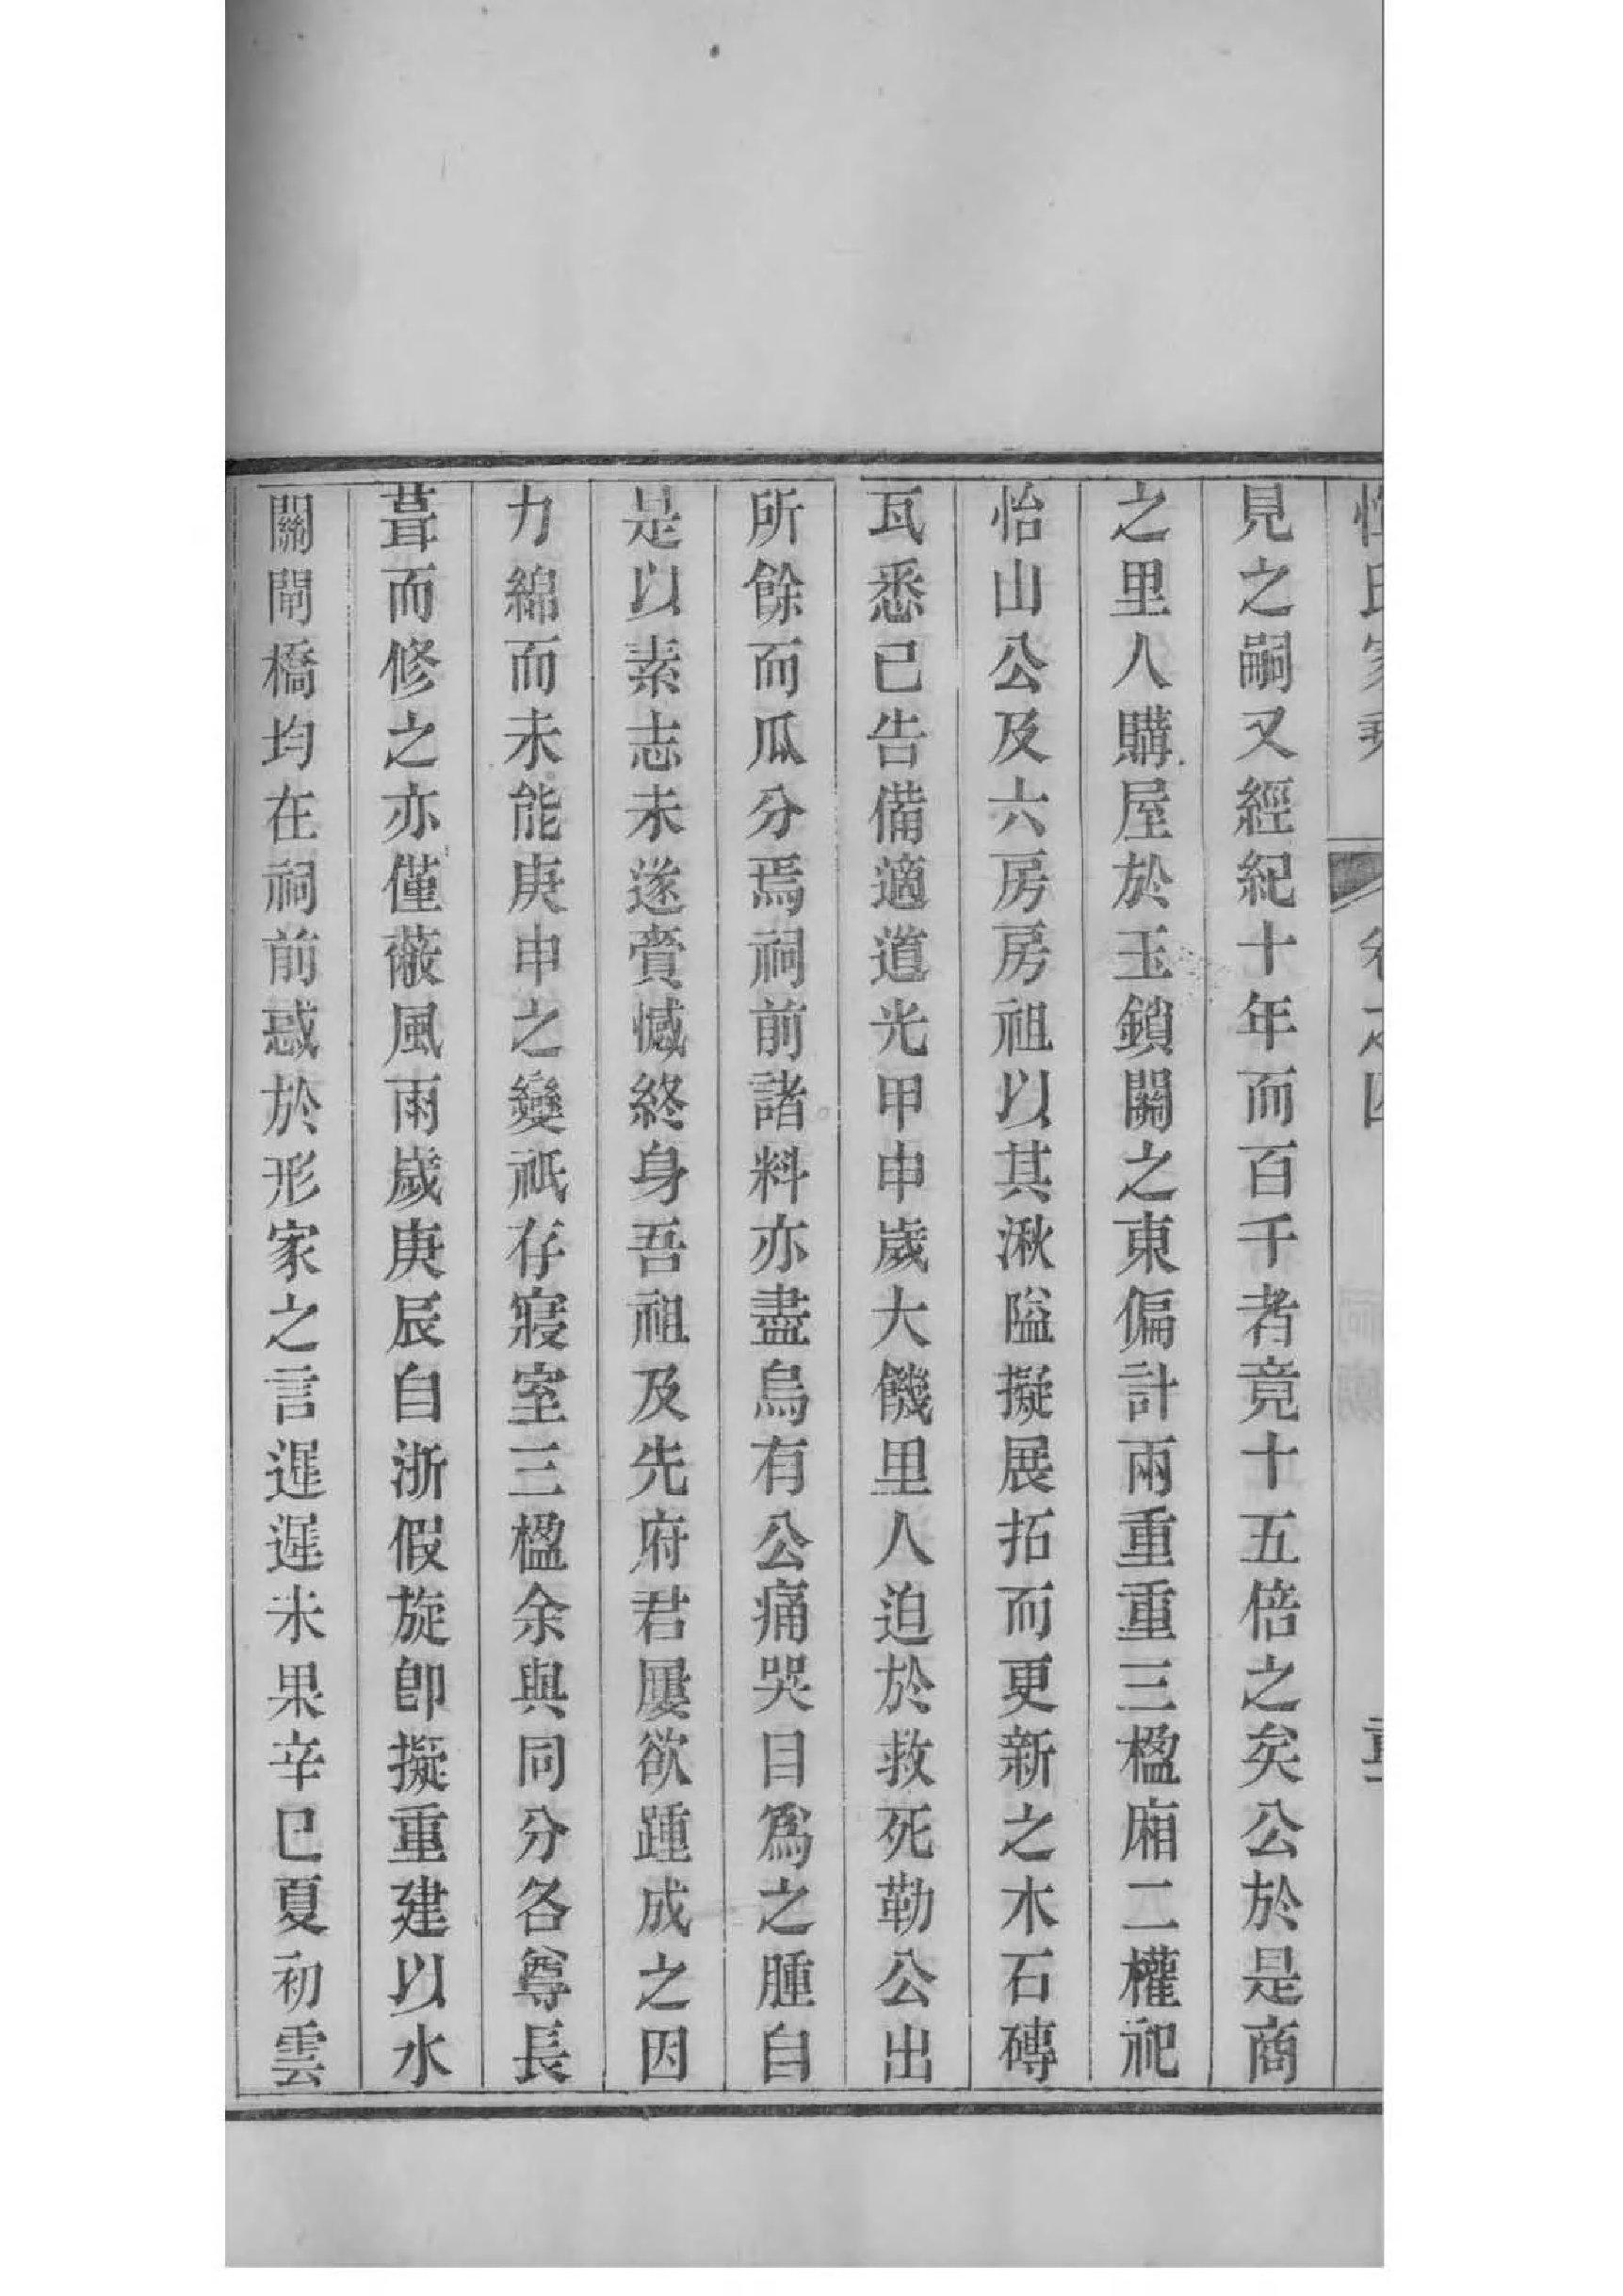 氏家乘 卷之四
見之嗣又經紀十年而百千者竟十五倍之矣公於是商
之里人購屋於玉鎖關之東偏計兩重重三楹廂二權祀
怡山公及六房房祖以其湫隘擬展拓而更新之木石磚
瓦悉已告備適道光甲申歲大饑里人迫於救死勒公出
所餘而瓜分焉祠前諸料亦盡烏有公痛哭目為之腫自
是以素志未遂賫憾終身吾祖及先府君屢欲踵成之因
力綿而未能庚申之變祇存寢室三楹余與同分各尊長
葺而修之亦僅蔽風雨歲庚辰自浙假旋卽擬重建以水
關閘橋均在祠前惑於形家之言遲遲未果辛巳夏初雲